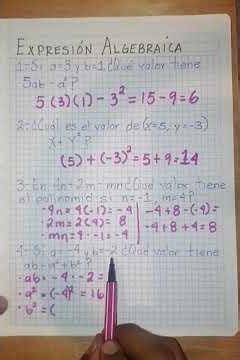 EXPRESIÓN ALGEBRAICA
1-Si a=3 y b=1 ¿Qué valor tiene
5ab - a²?
5(3)(1) - 3² = 15 - 9 = 6
2-¿Cuál es el valor de (x=5, y=-3)
x + y²?
(5) + (-3)² = 5 + 9 = 14
3-En 4n + 2m - mn ¿Qué valor tiene
el polinomio si n=-1, m=4?
·4n = 4(-1) = -4
·2m = 2(4) = 8
·mn = 4·-1 = -4
-4+8-(-4) =
-4+8+4 = 8
4-Si a=-4 y b=-2 ¿Qué valor tiene
ab - a² + b²?
·ab = -4·-2 =
·a² = (-4)² = 16
·b² = (